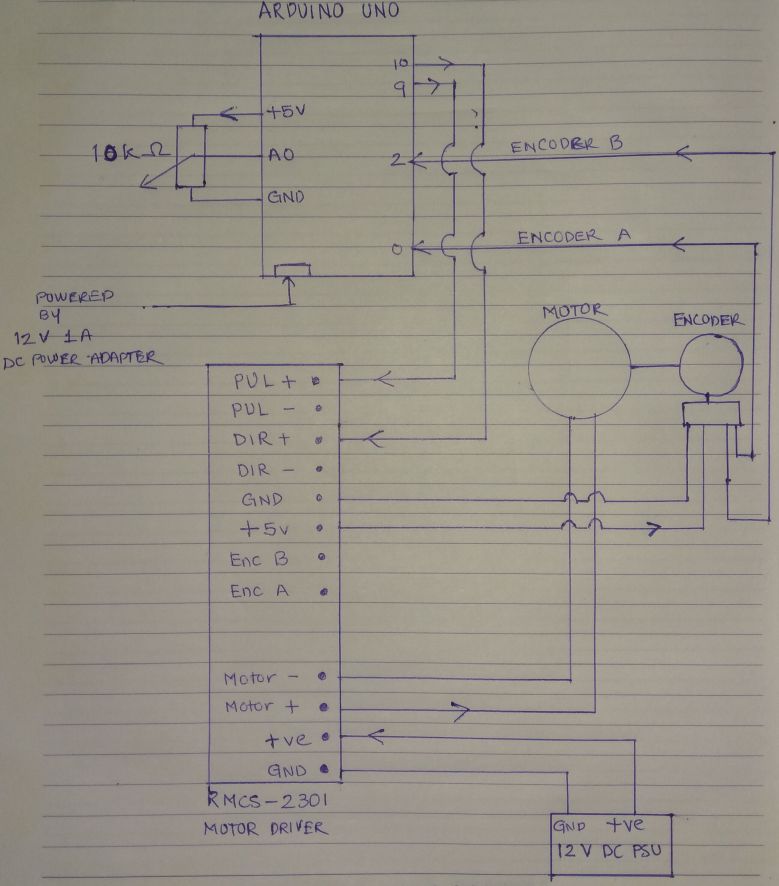 ARDUINO UNO
10
9
+5V
10kΩ
A0
2
ENCODER B
GND
0
ENCODER A
POWERED
BY
12V 1A
DC POWER ADAPTER
MOTOR
ENCODER
PUL +
PUL -
DIR +
DIR -
GND
+5v
Enc B
Enc A
Motor -
Motor +
+ve
GND
RMCS-2301
MOTOR DRIVER
GND +ve
12V DC PSU